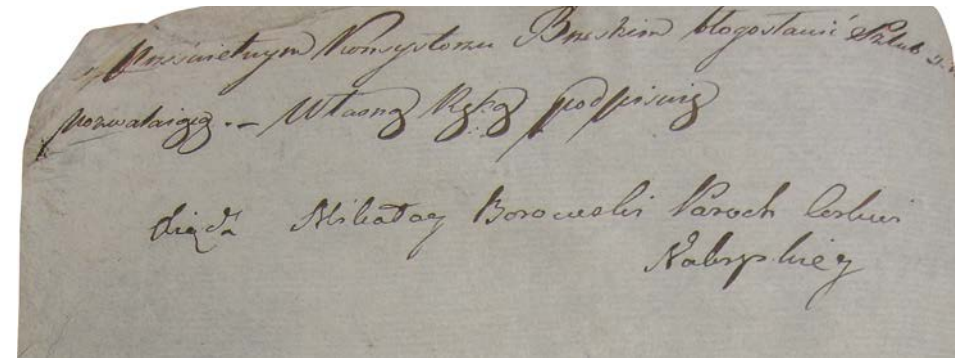 Prześwietnym Konsystorzu Brzeskim błogosławić Szlub
pozwalaiąą .– Własną Ręką podpisuię
Xiądz Mikołay Borowski Paroch Cerkwi
Nabryskiey